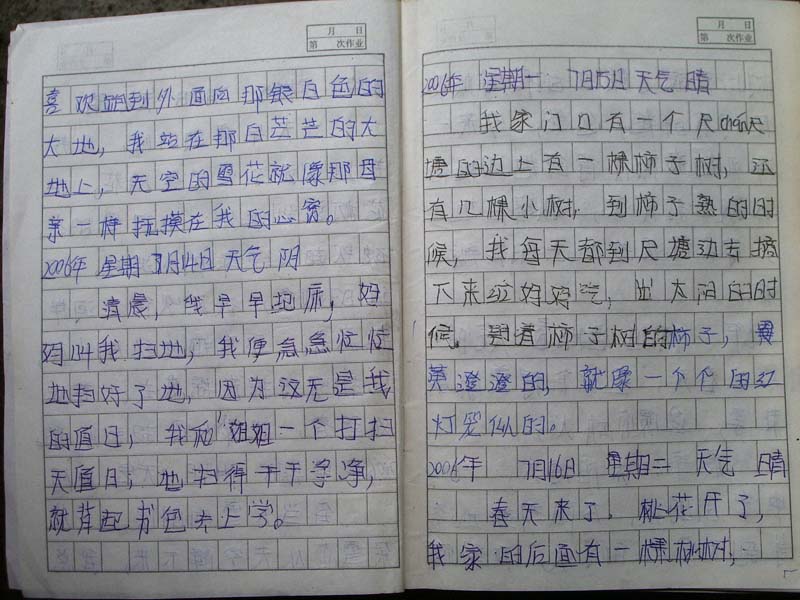 月 日
第 次作业
喜欢跑到外面向那银白色的
大地，我站在那白茫茫的大
地上，天空的雪花就像那母
亲一样抚摸在我的心窝。
2006年 星期 7月14日 天气 阴
清晨，我早早起床，妈
妈叫我扫地，我便急急忙忙
地扫好了地，因为这天是我
的值日，我和姐姐一个打扫
天值日；地扫得干干净净，
就背起书包去上学。
月 日
第 次作业
2006年 星期一 7月15日 天气 晴
我家门口有一个尺chán尺
塘的边上有一棵柿子树，还
有几棵小树，到柿子熟的时
候，我每天都到尺塘边去摘
下来给妈妈吃，出太阳的时
候，望着柿子树的柿子，
黄澄澄的，就像一个个 红
灯笼似的。
2006年 7月16日 星期二 天气 晴
春天来了，桃花开了，
我家的后面有一棵桃树，